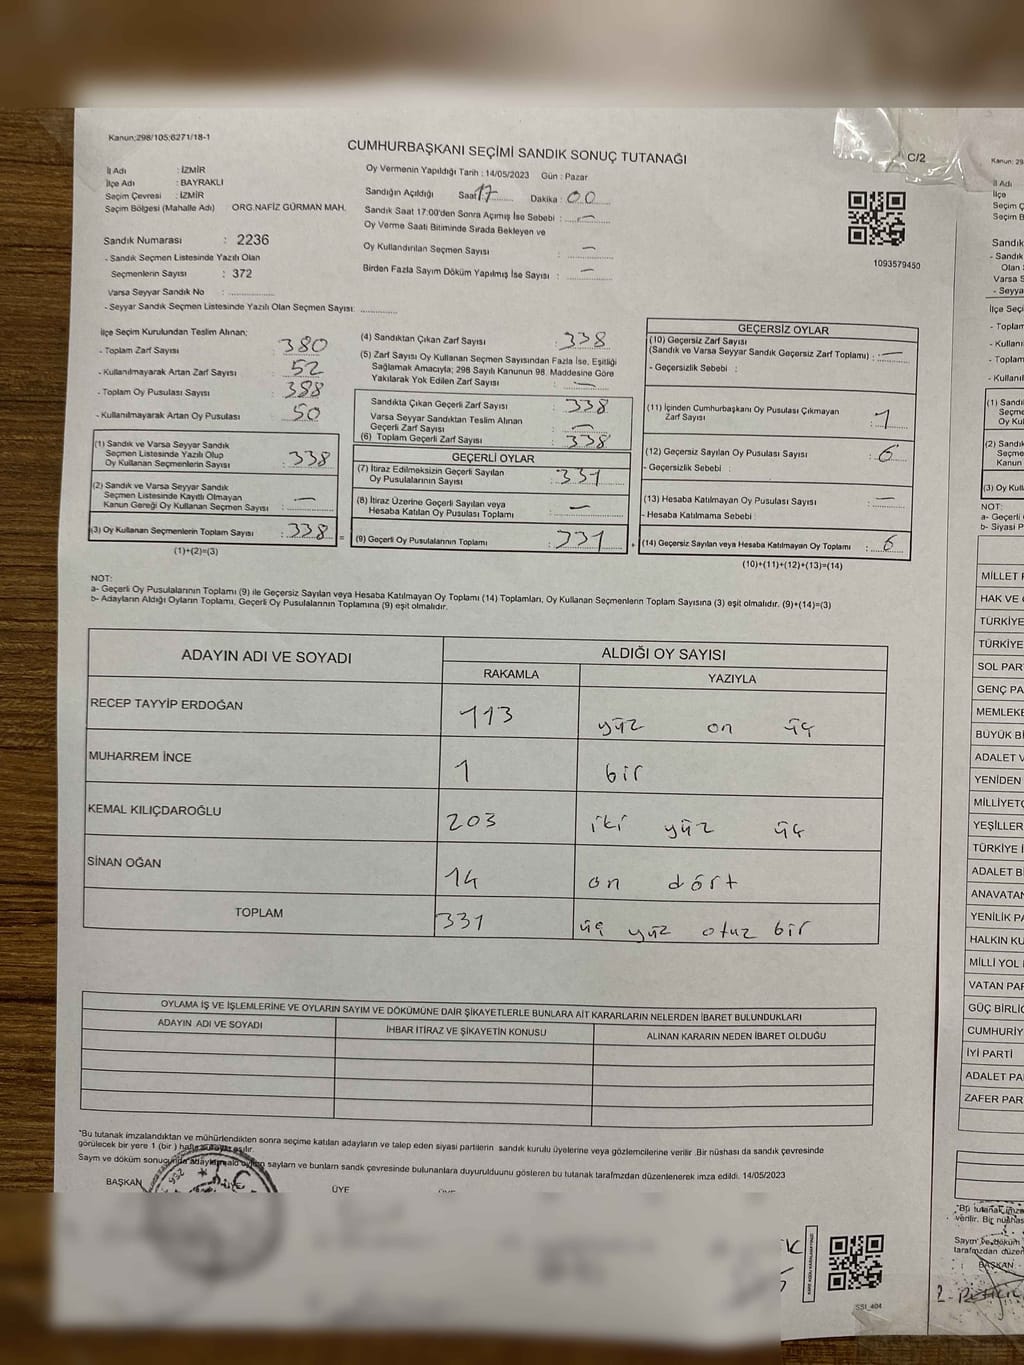 Kanun:298/105;6271/18-1
CUMHURBAŞKANI SEÇİMİ SANDIK SONUÇ TUTANAĞI
C/2
İl Adı : İZMİR
İlçe Adı : BAYRAKLI
Seçim Çevresi : İZMİR
Seçim Bölgesi (Mahalle Adı) ORG.NAFİZ GÜRMAN MAH.
Sandık Numarası : 2236
- Sandık Seçmen Listesinde Yazılı Olan
Seçmenlerin Sayısı : 372
Varsa Seyyar Sandık No :
- Seyyar Sandık Seçmen Listesinde Yazılı Olan Seçmen Sayısı:
Oy Vermenin Yapıldığı Tarih : 14/05/2023 Gün : Pazar
Sandığın Açıldığı Saat 17 Dakika : 00
Sandık Saat 17:00'den Sonra Açımış İse Sebebi : —
Oy Verme Saati Bitiminde Sırada Bekleyen ve
Oy Kullandırılan Seçmen Sayısı : —
Birden Fazla Sayım Döküm Yapılmış İse Sayısı : —
1093579450
İlçe Seçim Kurulundan Teslim Alınan;
- Toplam Zarf Sayısı : 380
- Kullanılmayarak Artan Zarf Sayısı : 52
- Toplam Oy Pusulası Sayısı : 388
- Kullanılmayarak Artan Oy Pusulası : 50
(1) Sandık ve Varsa Seyyar Sandık
Seçmen Listesinde Yazılı Olup
Oy Kullanan Seçmenlerin Sayısı : 338
(2) Sandık ve Varsa Seyyar Sandık
Seçmen Listesinde Kayıtlı Olmayan
Kanun Gereği Oy Kullanan Seçmen Sayısı : —
(3) Oy Kullanan Seçmenlerin Toplam Sayısı : 338 =
(1)+(2)=(3)
(4) Sandıktan Çıkan Zarf Sayısı : 338
(5) Zarf Sayısı Oy Kullanan Seçmen Sayısından Fazla İse, Eşitliği
Sağlamak Amacıyla; 298 Sayılı Kanunun 98. Maddesine Göre
Yakılarak Yok Edilen Zarf Sayısı : —
Sandıkta Çıkan Geçerli Zarf Sayısı : 338
Varsa Seyyar Sandıktan Teslim Alınan
Geçerli Zarf Sayısı : —
(6) Toplam Geçerli Zarf Sayısı : 338
GEÇERLİ OYLAR
(7) İtiraz Edilmeksizin Geçerli Sayılan
Oy Pusulalarının Sayısı : 331
(8) İtiraz Üzerine Geçerli Sayılan veya
Hesaba Katılan Oy Pusulası Toplamı : —
(9) Geçerli Oy Pusulalarının Toplamı : 331 +
GEÇERSİZ OYLAR
(10) Geçersiz Zarf Sayısı
(Sandık ve Varsa Seyyar Sandık Geçersiz Zarf Toplamı) : —
- Geçersizlik Sebebi :
(11) İçinden Cumhurbaşkanı Oy Pusulası Çıkmayan
Zarf Sayısı : 1
(12) Geçersiz Sayılan Oy Pusulası Sayısı : 6
- Geçersizlik Sebebi :
(13) Hesaba Katılmayan Oy Pusulası Sayısı : —
- Hesaba Katılmama Sebebi :
(14) Geçersiz Sayılan veya Hesaba Katılmayan Oy Toplamı : 6
(10)+(11)+(12)+(13)=(14)
NOT:
a- Geçerli Oy Pusulalarının Toplamı (9) ile Geçersiz Sayılan veya Hesaba Katılmayan Oy Toplamı (14) Toplamları, Oy Kullanan Seçmenlerin Toplam Sayısına (3) eşit olmalıdır. (9)+(14)=(3)
b- Adayların Aldığı Oyların Toplamı, Geçerli Oy Pusulalarının Toplamına (9) eşit olmalıdır.
ADAYIN ADI VE SOYADI ALDIĞI OY SAYISI
RAKAMLA YAZIYLA
RECEP TAYYİP ERDOĞAN 113 yüz on üç
MUHARREM İNCE 1 bir
KEMAL KILIÇDAROĞLU 203 iki yüz üç
SİNAN OĞAN 14 on dört
TOPLAM 331 üç yüz otuz bir
OYLAMA İŞ VE İŞLEMLERİNE VE OYLARIN SAYIM VE DÖKÜMÜNE DAİR ŞİKAYETLERLE BUNLARA AİT KARARLARIN NELERDEN İBARET BULUNDUKLARI
ADAYIN ADI VE SOYADI İHBAR İTİRAZ VE ŞİKAYETİN KONUSU ALINAN KARARIN NEDEN İBARET OLDUĞU
*Bu tutanak imzalandıktan ve mühürlendikten sonra seçime katılan adayların ve talep eden siyasi partilerin sandık kurulu üyelerine veya gözlemcilerine verilir. Bir nüshası da sandık çevresinde
görülecek bir yere 1 (bir) hafta asılır.
Sayım ve döküm sonucunda adayların oyları sandık çevresinde bulunanlara duyurulduunu gösteren bu tutanak tarafmzdan düzenlenerek imza edildi. 14/05/2023
BAŞKAN ÜYE
SSİ_404
Kanun: 29
İl Adı
İlçe
Seçim Ç
Seçim B
Sandık
- Sandık
Olan
Varsa S
- Seyya
İlçe Seçi
- Toplam
- Kullanı
- Toplam
- Kullanıl
(1) Sandı
Seçme
Oy Ku
(2) Sandık
Seçme
Kanun
(3) Oy Kull
NOT:
a- Geçerli
b- Siyasi P
MİLLET
HAK VE
TÜRKİYE
TÜRKİYE
SOL PAR
GENÇ PA
MEMLEKE
BÜYÜK Bİ
ADALET V
YENİDEN
MİLLİYETÇ
YEŞİLLER
TÜRKİYE İ
ADALET Bİ
ANAVATAN
YENİLİK PA
HALKIN KU
MİLLİ YOL
VATAN PAR
GÜÇ BİRLİĞ
CUMHURİY
İYİ PARTİ
ADALET PA
ZAFER PAR
*Bu tutanak imza
verilir. Bir nüshas
Sayım ve döküm
tarafmzdan düzen
BAŞKAN